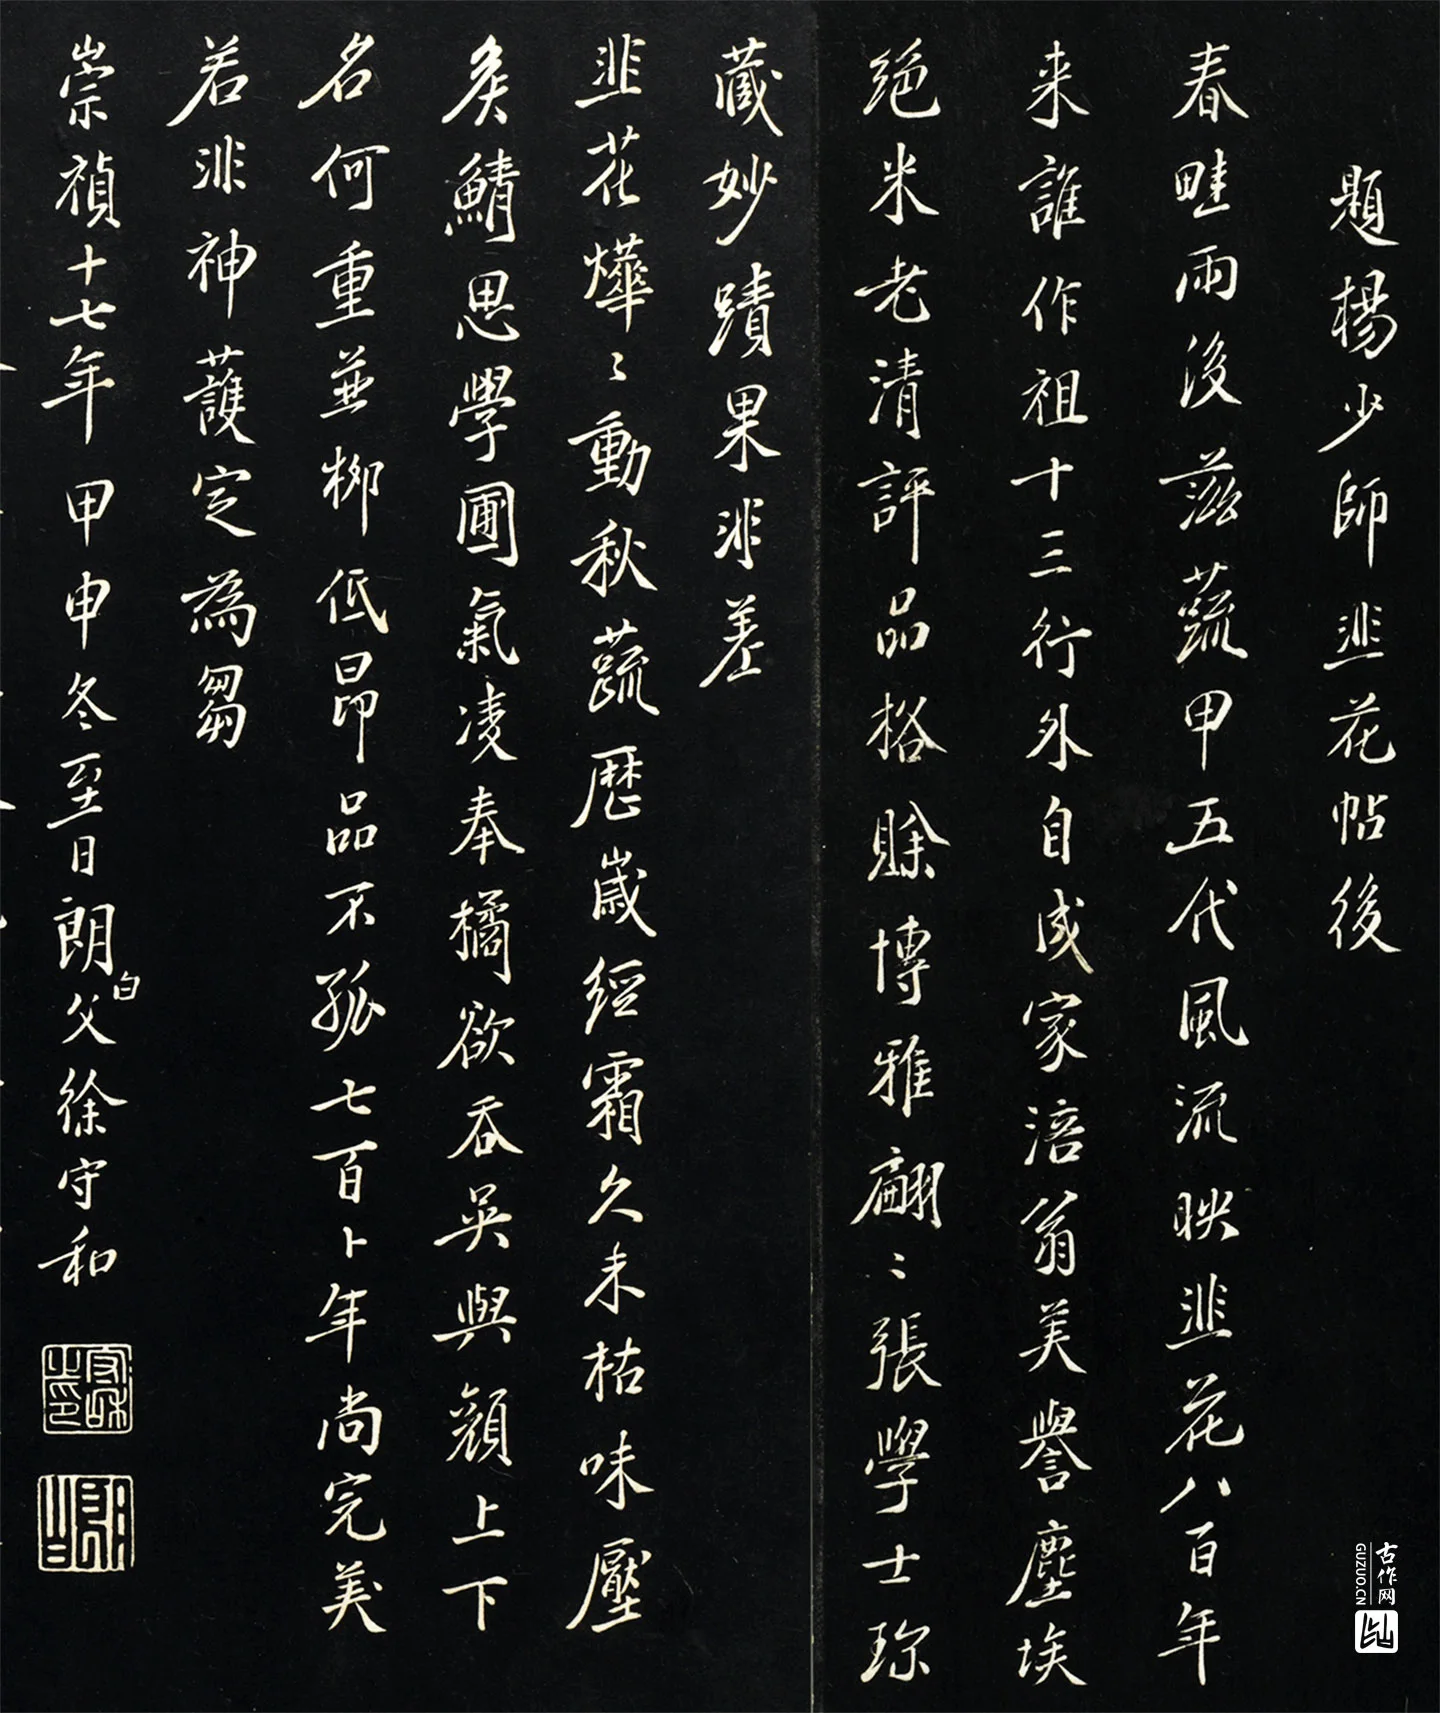 題楊少師韭花帖後
春畦雨後茲蔬甲五代風流映韭花八百年
来誰作祖十三行外自成家涪翁美譽塵埃
絕米老清評品格賒博雅翩〻張學士珎
藏妙蹟果非差
韭花燁〻動秋蔬歷歲經霜久未枯味壓
矦鯖思學圃氣凌奉橘欲吞吳與顏上下
名何重並柳低昂品不孤七百卜年尚完美
若非神護定為芻
崇禎十七年甲申冬至日朗白父徐守和
守和之印
朗白
古作网
GUZUO.CN